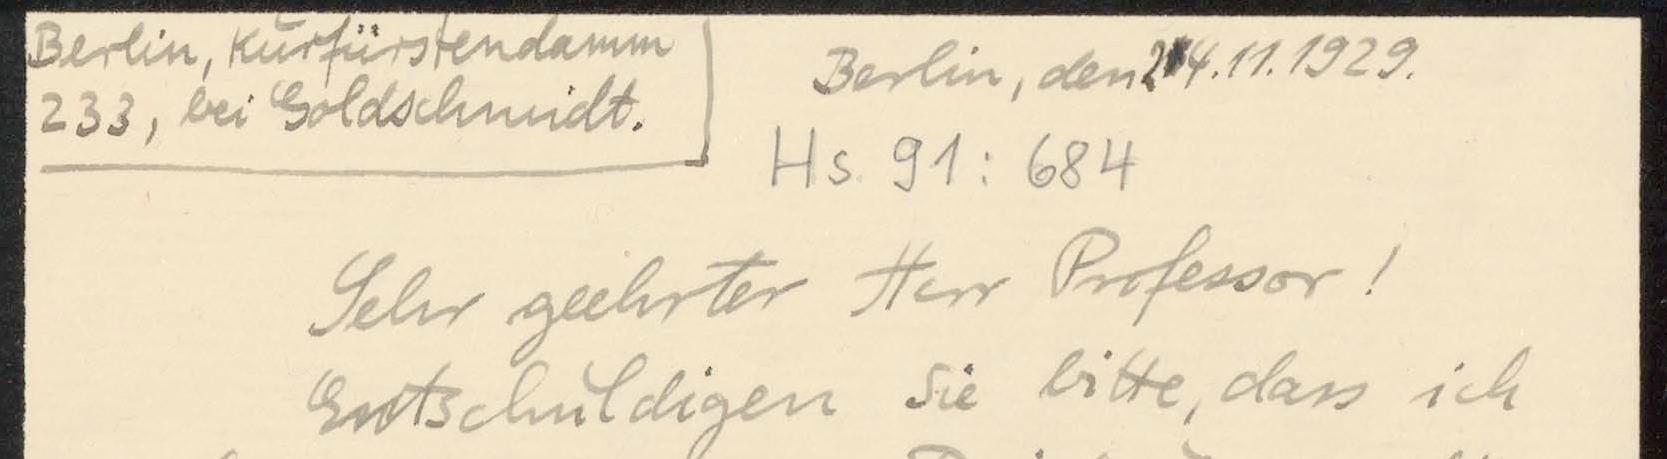 Berlin, Kurfürstendamm
233, bei Goldschmidt.
Berlin, den 24.11.1929.
Hs. 91: 684
Sehr geehrter Herr Professor!
Entschuldigen Sie bitte, dass ich